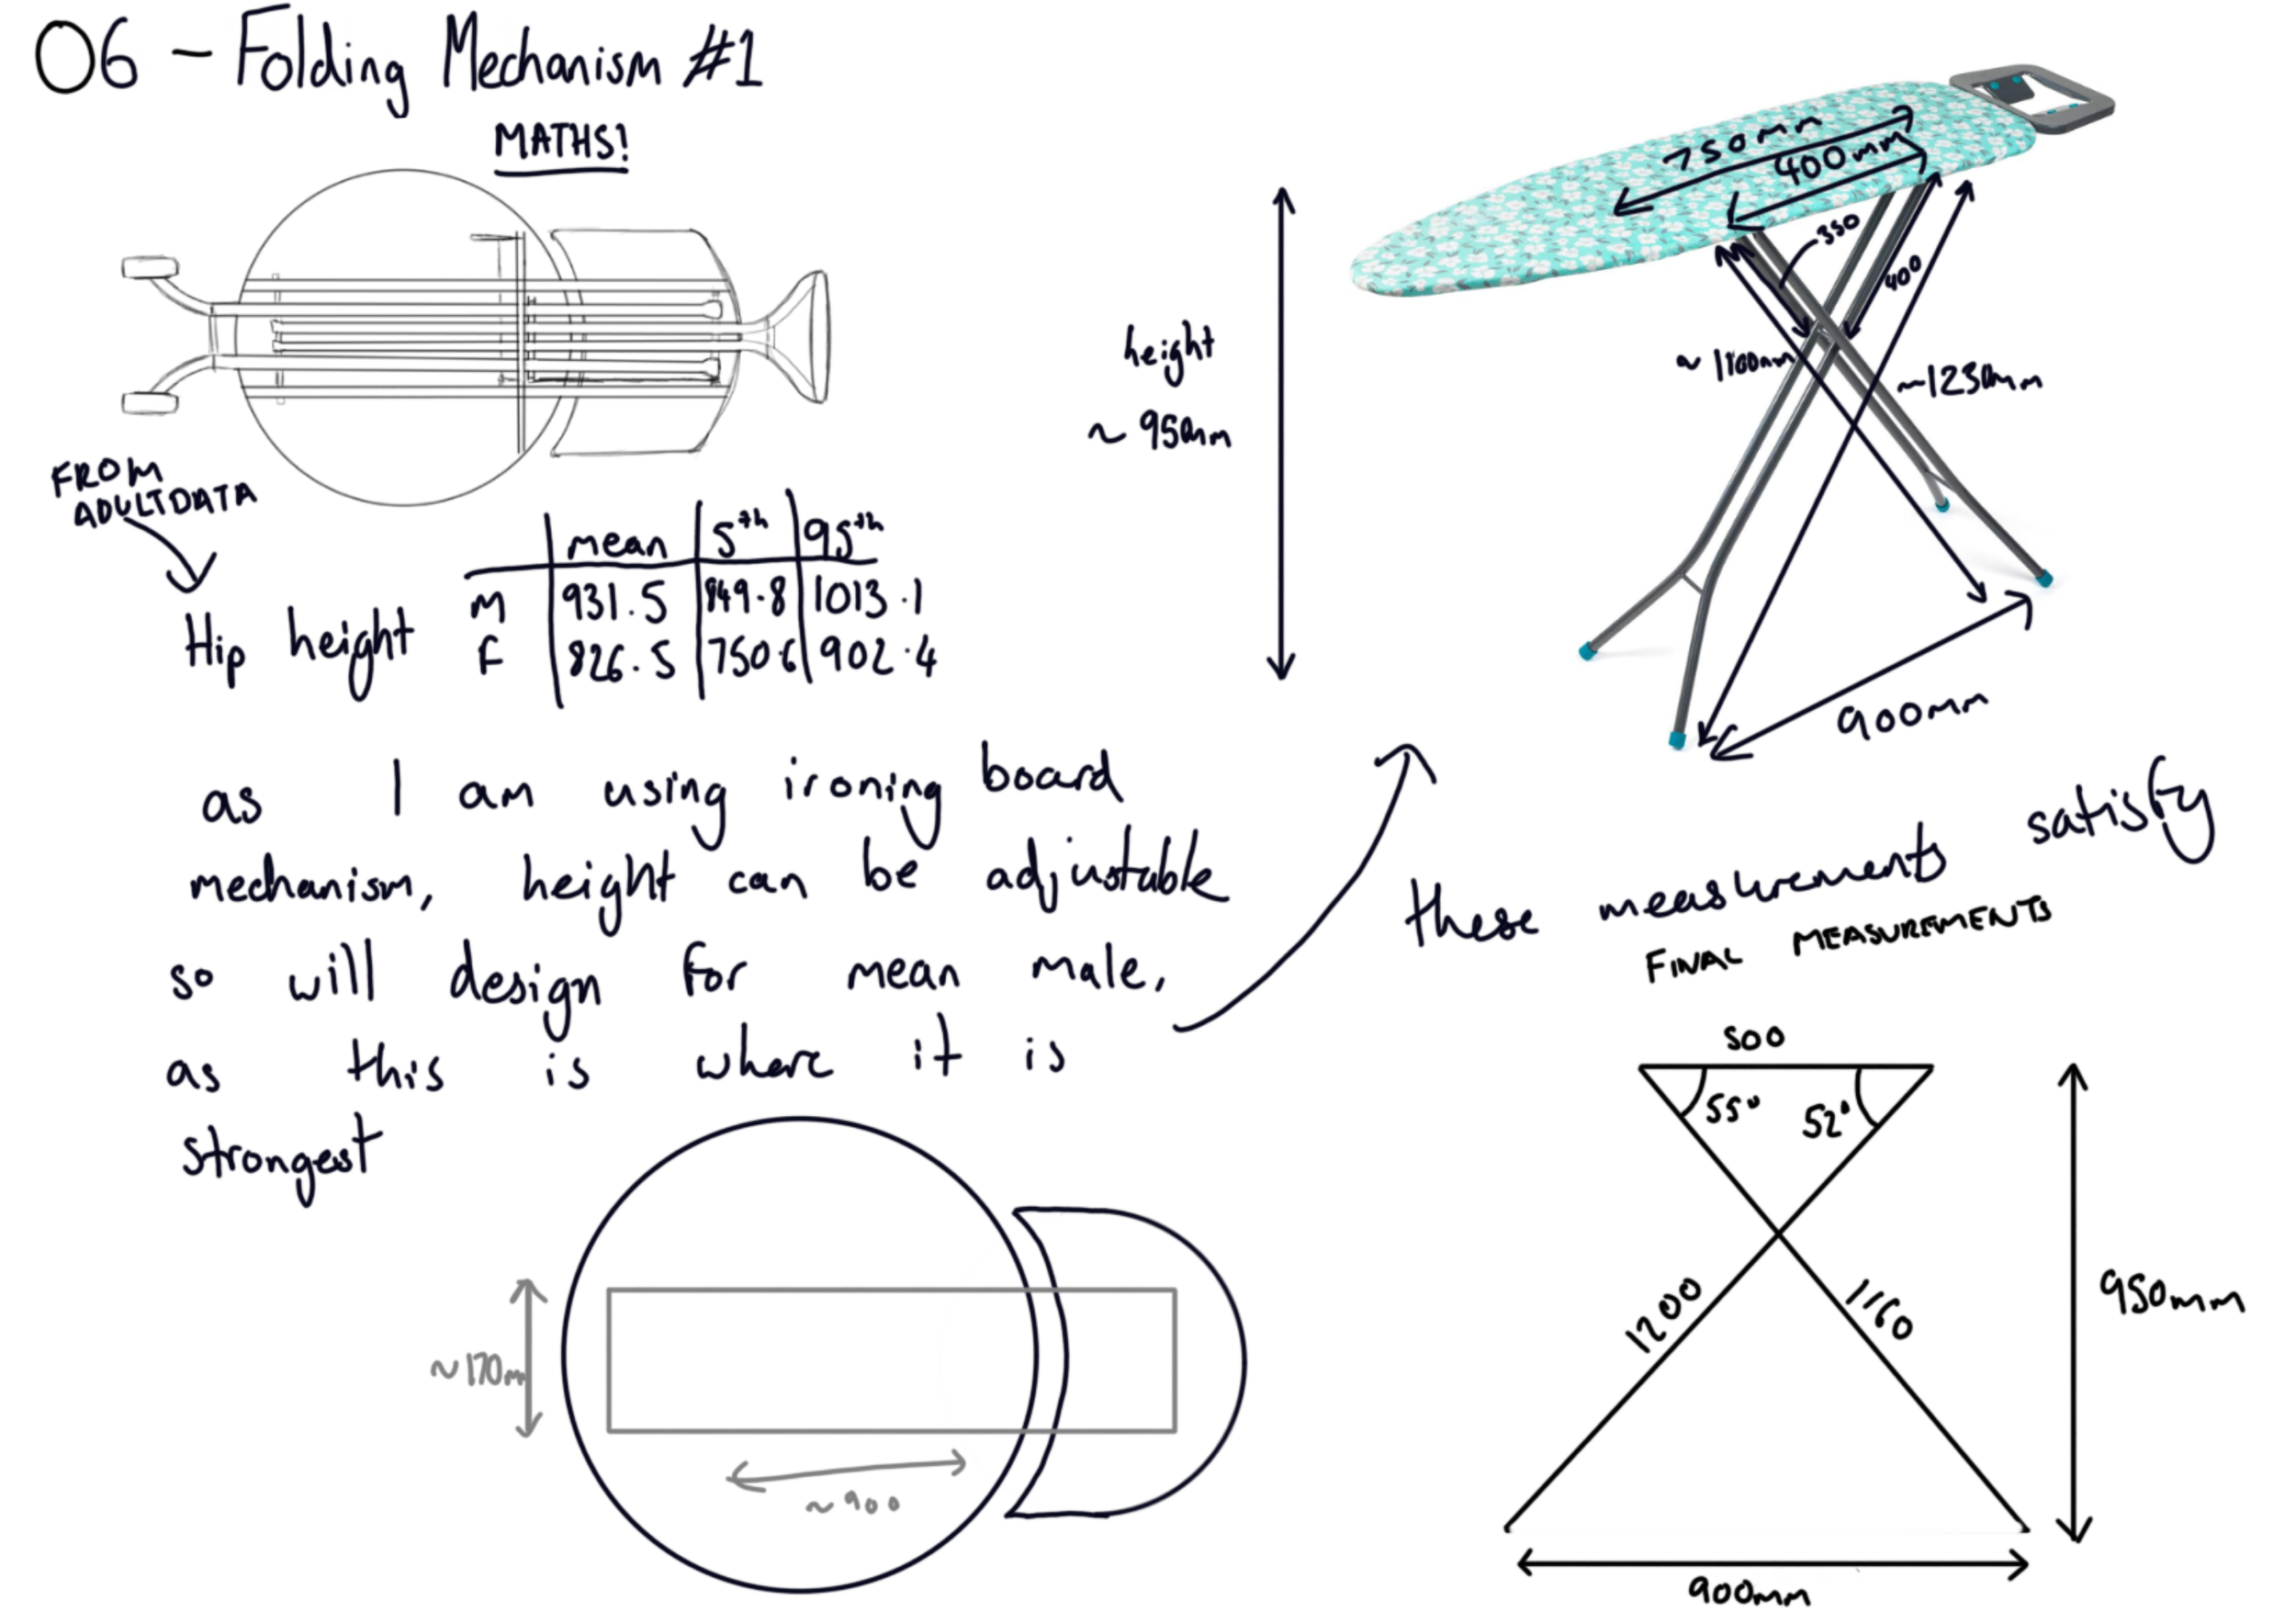 06 - Folding Mechanism #1
MATHS!
FROM
ADULTDATA
mean 5th 95th
M 931.5 849.8 1013.1
Hip height
F 826.5 750.6 902.4
as I am using ironing board
mechanism, height can be adjustable
so will design for mean male,
as this is where it is
strongest
~170mm
~900
height
~950mm
750mm
400mm
350
400
~1100mm
~1230mm
900mm
these measurements satisfy
FINAL MEASUREMENTS
500
55° 52°
1200 1160
950mm
900mm